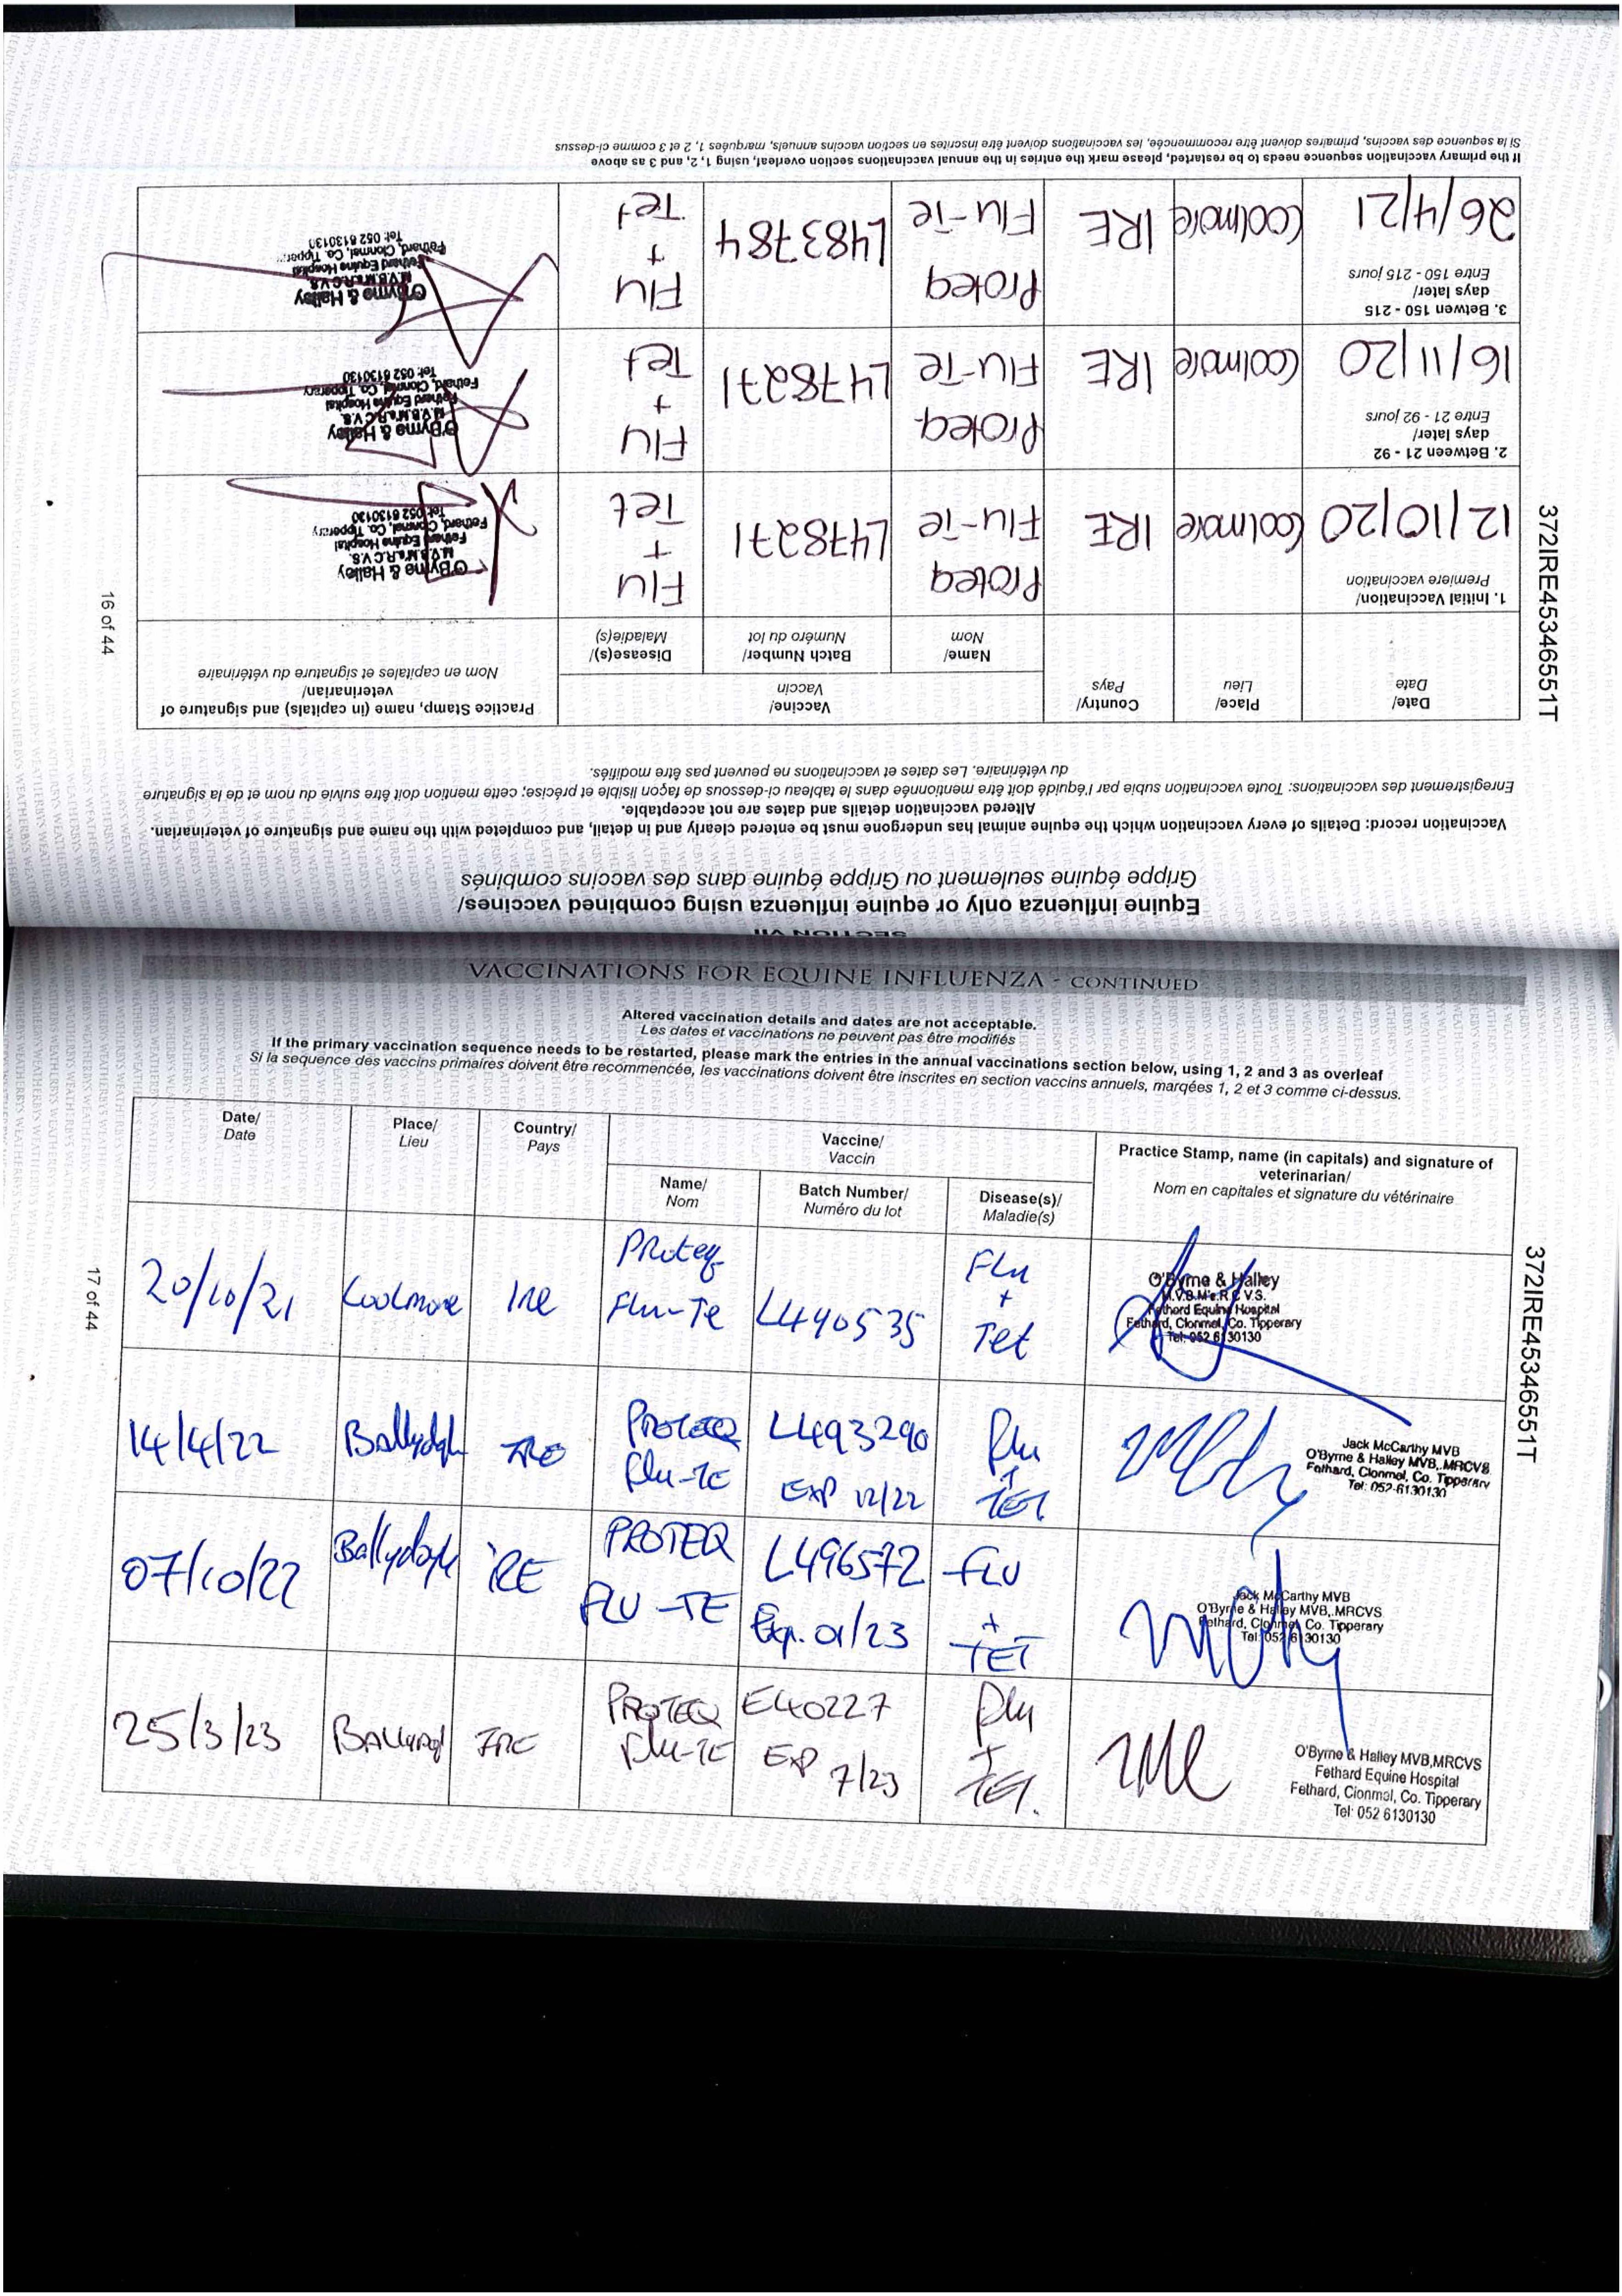 SECTION VII
Equine influenza only or equine influenza using combined vaccines/
Grippe équine seulement ou Grippe équine dans des vaccins combinés
Vaccination record: Details of every vaccination which the equine animal has undergone must be entered clearly and in detail, and completed with the name and signature of veterinarian.
Altered vaccination details and dates are not acceptable.
Enregistrement des vaccinations: Toute vaccination subie par l'équidé doit être mentionnée dans le tableau ci-dessous de façon lisible et précise; cette mention doit être suivie du nom et de la signature
du vétérinaire. Les dates et vaccinations ne peuvent pas être modifiés.
Date/
Date
Place/
Lieu
Country/
Pays
Vaccine/
Vaccin
Name/
Nom
Batch Number/
Numéro du lot
Disease(s)/
Maladie(s)
Practice Stamp, name (in capitals) and signature of
veterinarian/
Nom en capitales et signature du vétérinaire
1. Initial Vaccination/
Premiere vaccination
12/10/20
Coolmore
IRE
Proteq
Flu-Te
L478271
Flu
+
Tet
O'Byrne & Halley
M.V.B.M's.R.C.V.S.
Fethard Equine Hospital
Fethard, Clonmel, Co. Tipperary
Tel: 052 6130130
2. Between 21 - 92
days later/
Entre 21 - 92 jours
16/11/20
Coolmore
IRE
Proteq
Flu-Te
L478271
Flu
+
Tet
O'Byrne & Halley
M.V.B.M's.R.C.V.S.
Fethard Equine Hospital
Fethard, Clonmel, Co. Tipperary
Tel: 052 6130130
3. Betwen 150 - 215
days later/
Entre 150 - 215 jours
26/4/21
Coolmore
IRE
Proteq
Flu-Te
L483784
Flu
+
Tet
O'Byrne & Halley
M.V.B.M's.R.C.V.S.
Fethard Equine Hospital
Fethard, Clonmel, Co. Tipper
Tel: 052 6130130
If the primary vaccination sequence needs to be restarted, please mark the entries in the annual vaccinations section overleaf, using 1, 2, and 3 as above
Si la sequence des vaccins, primaires doivent être recommencée, les vaccinations doivent être inscrites en section vaccins annuels, marquées 1, 2 et 3 comme ci-dessus
372IRE45346551T
16 of 44
VACCINATIONS FOR EQUINE INFLUENZA - CONTINUED
Altered vaccination details and dates are not acceptable.
Les dates et vaccinations ne peuvent pas être modifiés
If the primary vaccination sequence needs to be restarted, please mark the entries in the annual vaccinations section below, using 1, 2 and 3 as overleaf
Si la sequence des vaccins primaires doivent être recommencée, les vaccinations doivent être inscrites en section vaccins annuels, marqées 1, 2 et 3 comme ci-dessus.
Date/
Date
Place/
Lieu
Country/
Pays
Vaccine/
Vaccin
Name/
Nom
Batch Number/
Numéro du lot
Disease(s)/
Maladie(s)
Practice Stamp, name (in capitals) and signature of
veterinarian/
Nom en capitales et signature du vétérinaire
20/10/21
Coolmore
IRE
PRoteq
Flu-Te
L490535
Flu
+
Tet
O'Byrne & Halley
M.V.B.M's.R.C.V.S.
Fethard Equine Hospital
Fethard, Clonmel, Co. Tipperary
Tel: 052 6130130
14/4/22
Ballydoyle
IRE
PROTEQ
Flu-TE
L493290
EXP 12/22
Flu
+
TET
Jack McCarthy MVB
O'Byrne & Halley MVB,.MRCVS
Fethard, Clonmel, Co. Tipperary
Tel: 052-6130130
07/10/22
Ballydoyle
IRE
PROTEQ
FLU-TE
L496572
Exp. 01/23
FLU
+
TET
Jack McCarthy MVB
O'Byrne & Halley MVB,.MRCVS
Fethard, Clonmel, Co. Tipperary
Tel: 052 6130130
25/3/23
IRE
PROTEQ
Flu-TE
E40227
EXP 7/23
Flu
+
TET.
O'Byrne & Halley MVB,MRCVS
Fethard Equine Hospital
Fethard, Clonmel, Co. Tipperary
Tel: 052 6130130
372IRE45346551T
17 of 44